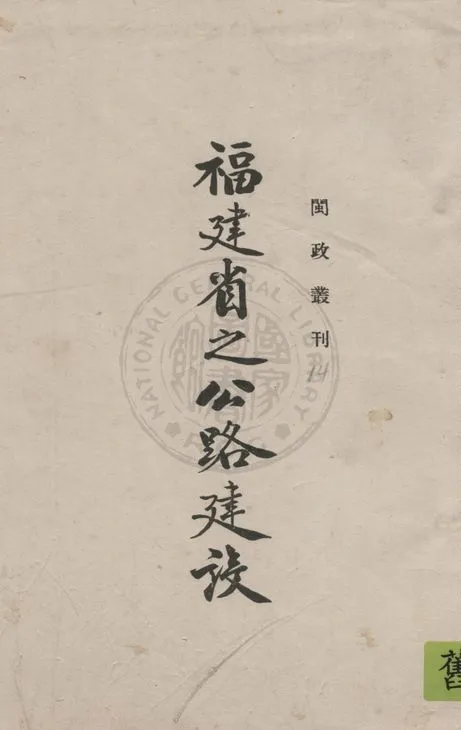 閩政叢刊 14
福建省之公路建設
NATIONAL CENTRAL LIBRARY
國家圖書館
舊